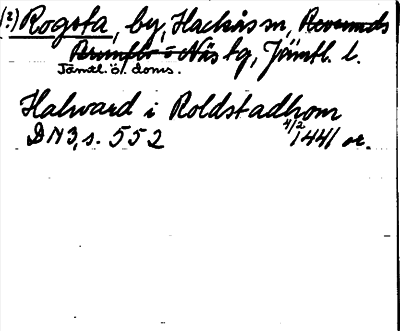 (?) Rogsta, by, Hackås sn, Revsunds
Brunflo o Näs tg, Jämtl. l.
Jämtl. ö. doms.
Halward i Roldstadhom
DN 3, s. 552 4/2 1441 or.